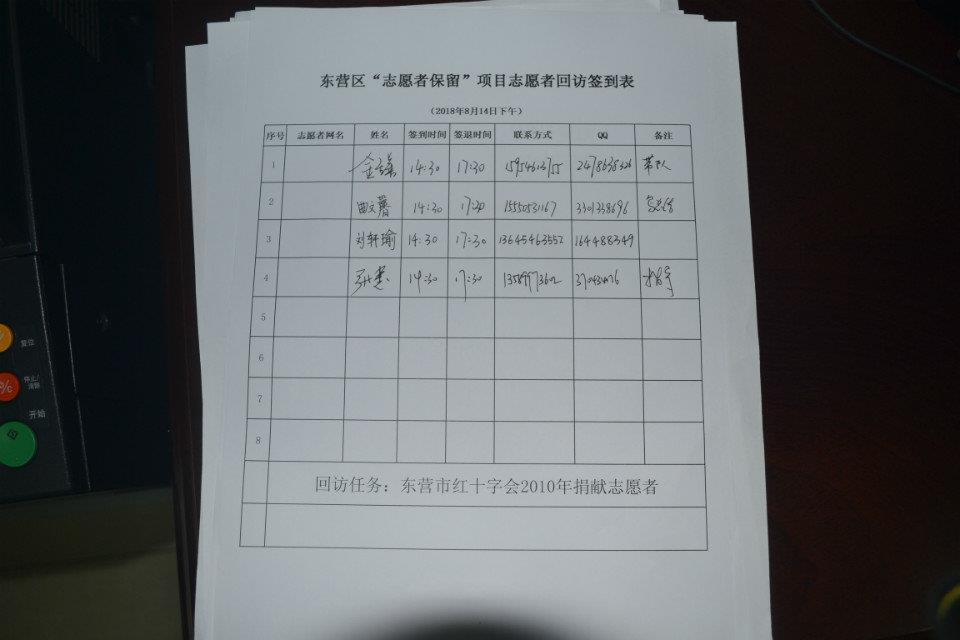 东营区“志愿者保留”项目志愿者回访签到表
（2018年8月14日下午）
序号 志愿者网名 姓名 签到时间 签退时间 联系方式 QQ 备注
1 14:30 17:30 带队
2 曲文馨 14:30 17:30 15550531167 3301338696
3 刘轩瑜 14:30 17:30 13645463552 164488349
4 14:30 17:30
5
6
7
8
回访任务：东营市红十字会2010年捐献志愿者
复位
停止/
清除
开始